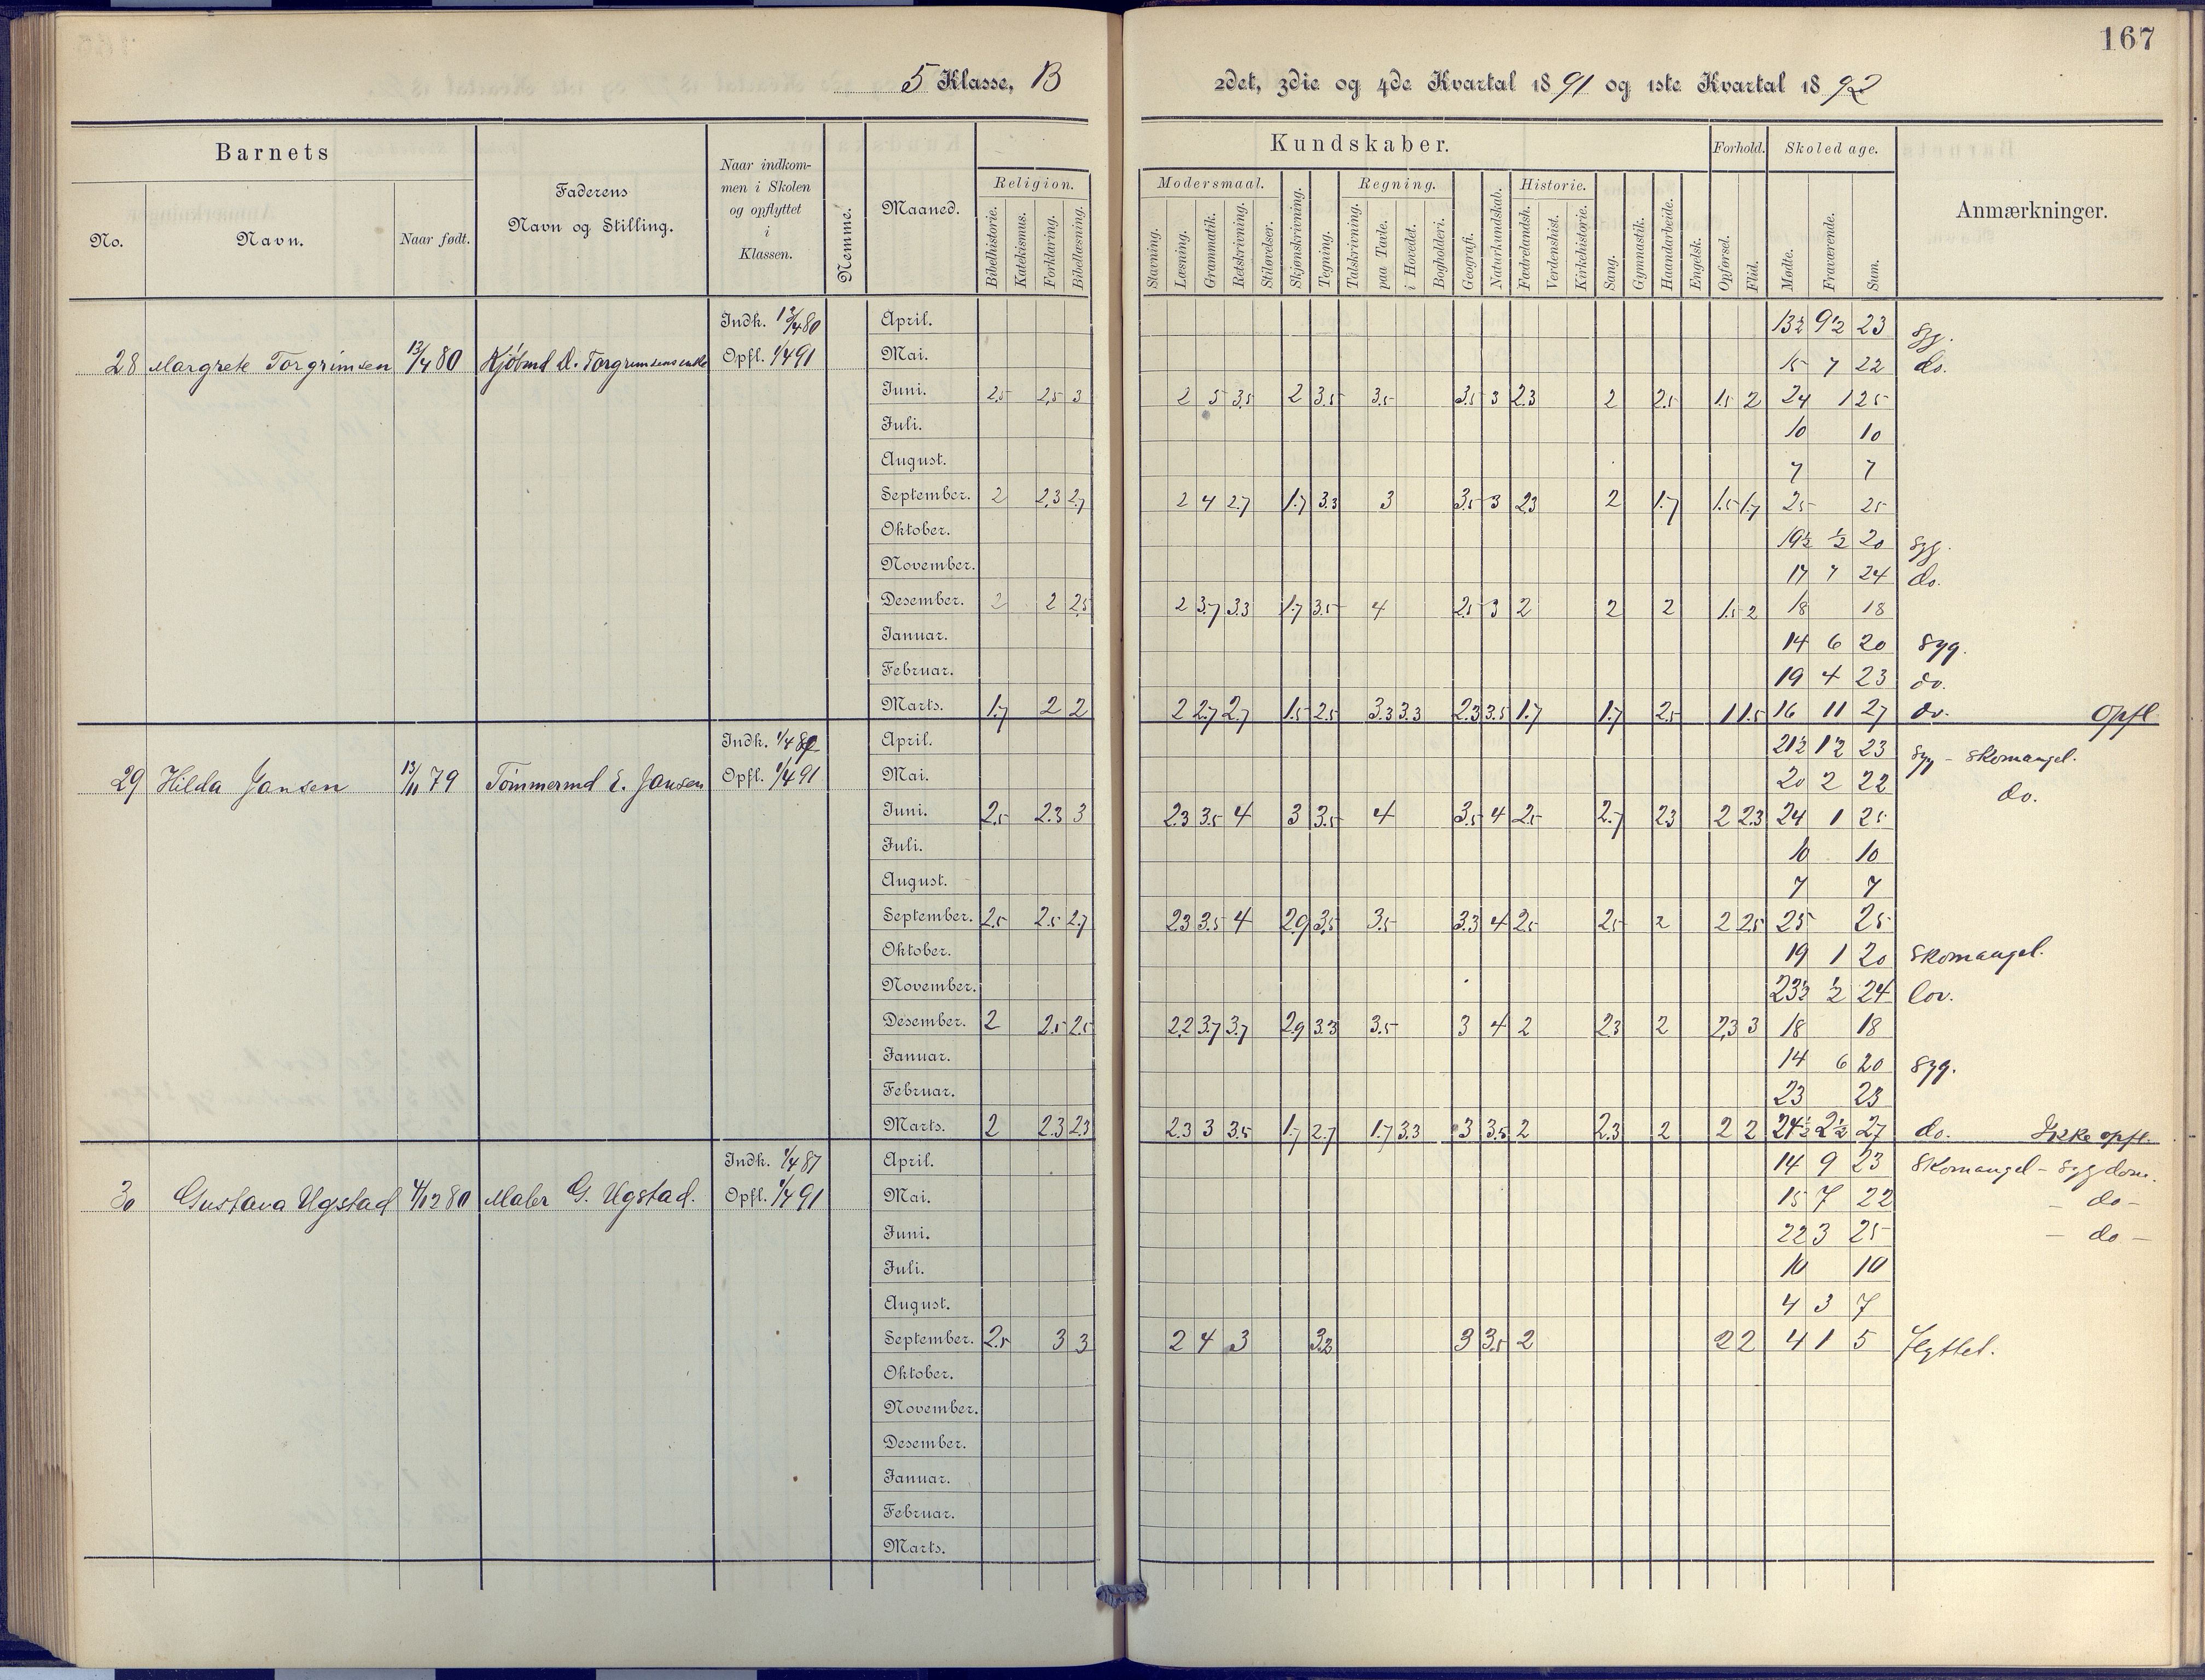 167
5 Klasse, B 2det, 3die og 4de Kvartal 1891 og 1ste Kvartal 1892
Barnets
No. Navn. Naar født.
Faderens Navn og Stilling.
Naar indkom-
men i Skolen
og opflyttet
i
Klassen.
Nemme.
Maaned.
Kundskaber.
Religion.
Bibelhistorie. Katekismus. Forklaring. Bibellæsning.
Modersmaal.
Stavning. Læsning. Grammatik. Retskrivning. Stiløvelser.
Skjønskrivning. Tegning.
Regning.
Talskrivning. paa Tavle. i Hovedet. Bogholderi.
Geografi. Naturkundskab.
Historie.
Fædrelandsh. Verdenshist. Kirkehistorie.
Sang. Gymnastik. Haandarbeide. Engelsk.
Forhold.
Opførsel. Flid.
Skoledage.
Mødte. Fraværende. Sum.
Anmærkninger.
28 Margrete Torgrimsen 13/4 80 Kjøbmd D. Torgrimsens enke
Indk. 12/4 80
Opfl. 1/4 91
April. 13½ 9½ 23 Syg.
Mai. 15 7 22 do.
Juni. 2.5 2.5 3 2 5 3.5 2 3.5 3.5 3.5 3 2.3 2 2.5 1.5 2 24 1 25
Juli. 10 10
August. 7 7
September. 2 2.3 2.7 2 4 2.7 1.7 3.3 3 3.5 3 2.3 2 1.7 1.5 1.7 25 25
Oktober. 19½ ½ 20 Syg.
November. 17 7 24 do.
Desember. 2 2 2.5 2 3.7 3.3 1.7 3.5 4 2.5 3 2 2 2 1.5 2 18 18
Januar. 14 6 20 Syg.
Februar. 19 4 23 do.
Marts. 1.7 2 2 2 2.7 2.7 1.5 2.5 3.3 3.3 2.3 3.5 1.7 1.7 2.5 1 1.5 16 11 27 do. Opfl.
29 Hilda Jansen 13/11 79 Tømmermd E. Jansen
Indk. 1/4
Opfl. 1/4 91
April. 21½ 1½ 23 Syg - Skomangel.
Mai. 20 2 22 do.
Juni. 2.5 2.3 3 2.3 3.5 4 3 3.5 4 3.5 4 2.5 2.7 2.3 2 2.3 24 1 25
Juli. 10 10
August. 7 7
September. 2.5 2.5 2.7 2.3 3.5 4 2.9 3.5 3.5 3.3 4 2.5 2.5 2 2 2.5 25 25
Oktober. 19 1 20 Skomangel.
November. 23½ ½ 24 lov.
Desember. 2 2.5 2.5 2.2 3.7 3.7 2.9 3.3 3.5 3 4 2 2.3 2 2.3 3 18 18
Januar. 14 6 20 Syg.
Februar. 23 23
Marts. 2 2.3 2.3 2.3 3 3.5 1.7 2.7 1.7 3.3 3 3.5 2 2.3 2 2 2 24½ 2½ 27 do. Ikke opfl.
30 Gustava Ugstad 4/12 80 Maler G. Ugstad.
Indk. 1/4 87
Opfl. 1/4 91
April. 14 9 23 Skomangel - Sygdom.
Mai. 15 7 22 - do -
Juni. 22 3 25 - do -
Juli. 10 10
August. 4 3 7
September. 2.5 3 3 2 4 3 3.3 3 3.5 2 2 2 4 1 5 Flyttet.
Oktober.
November.
Desember.
Januar.
Februar.
Marts.